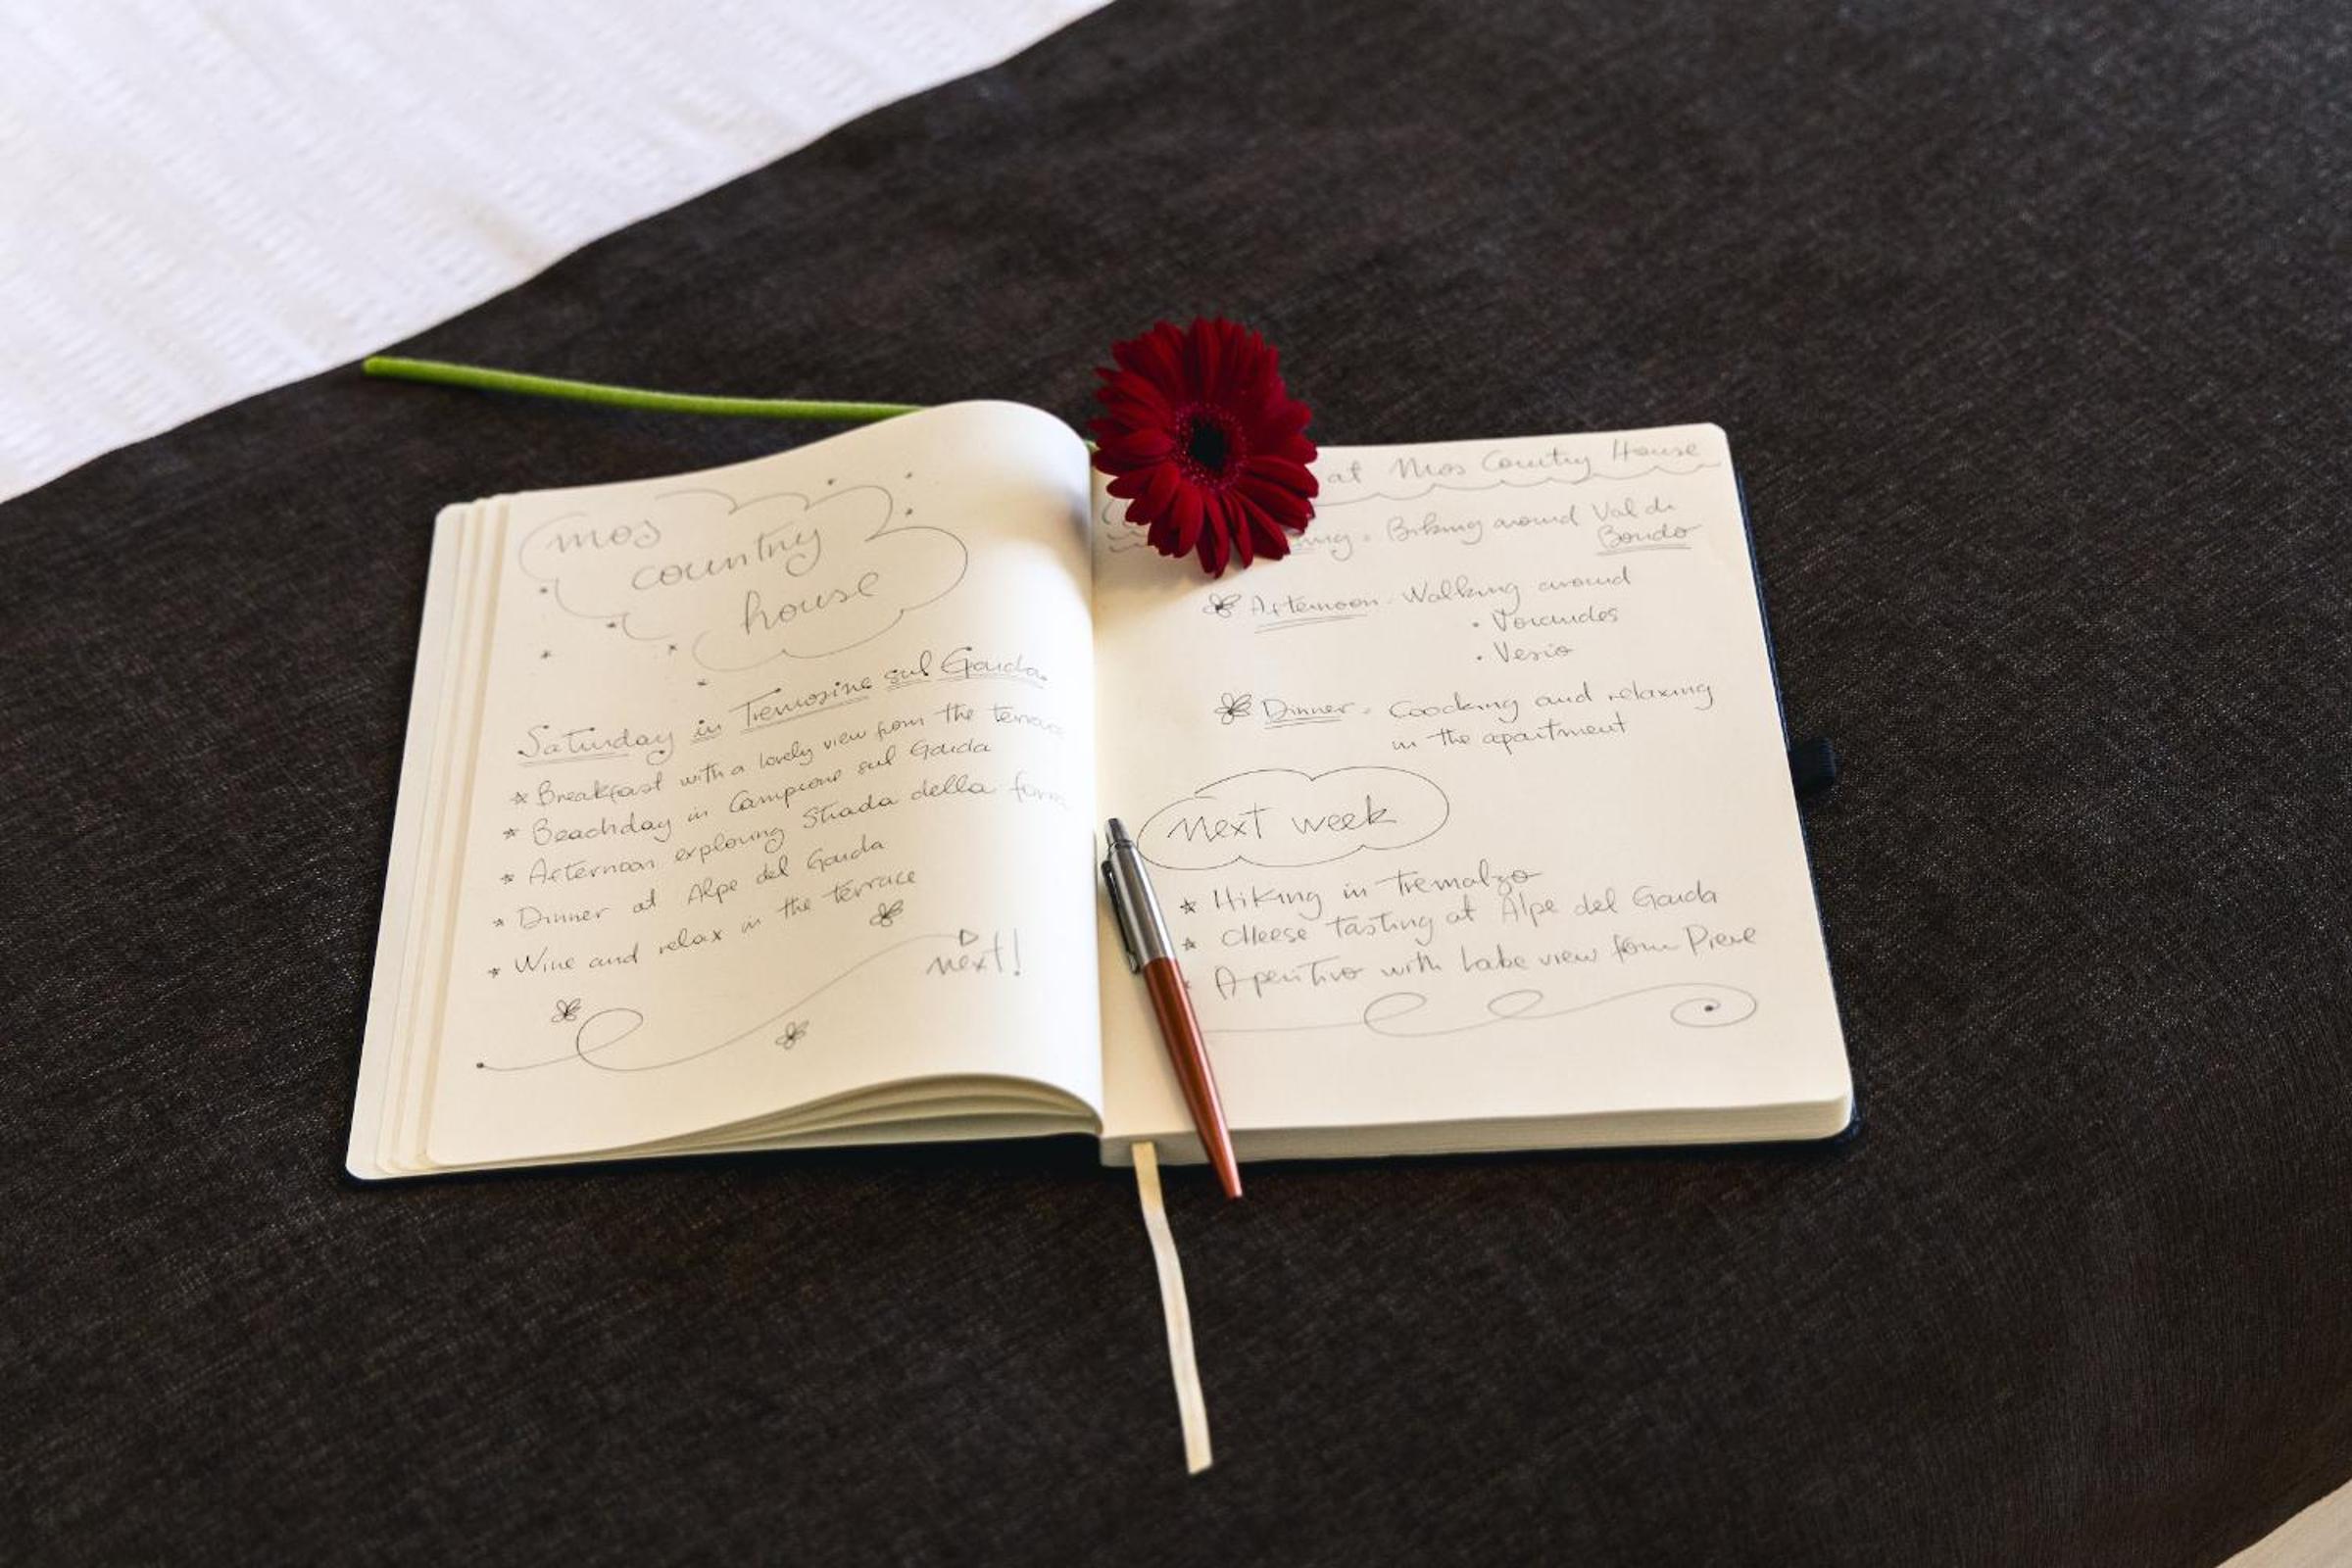 mos
country
house
Saturday in Tremosine sul Garda
* Breakfast with a lovely view from the terrace
* Beachday in Campione sul Garda
* Afternoon exploring Strada della forra
* Dinner at Alpe del Garda
* Wine and relax in the terrace
next!
at Mos Country House
Biking around Val di
Bondo
Afternoon - Walking around
• Voiandes
• Vesio
Dinner - Coocking and relaxing
in the apartment
next week
* Hiking in Tremalzo
* Cheese tasting at Alpe del Garda
Aperitivo with Lake view from Pieve